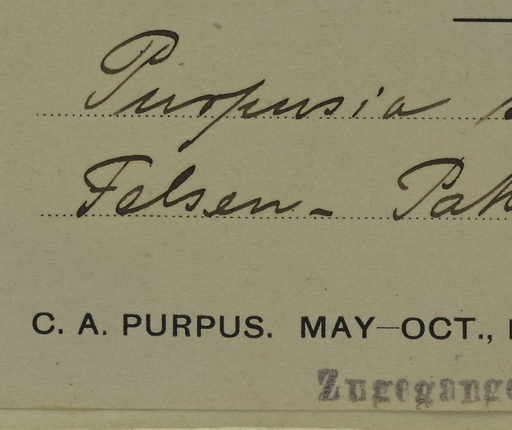 Purpusia
Felsen-
C. A. PURPUS. MAY–OCT.,
Zugegange